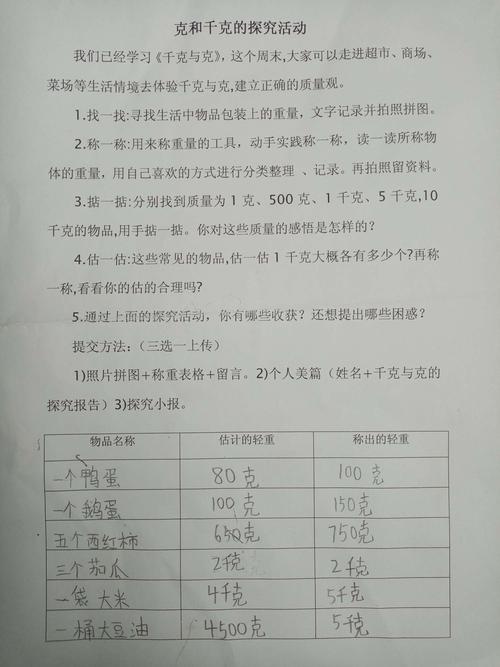 克和千克的探究活动
我们已经学习《千克与克》，这个周末,大家可以走进超市、商场、
菜场等生活情境去体验千克与克,建立正确的质量观。
1.找一找:寻找生活中物品包装上的重量，文字记录并拍照拼图。
2.称一称:用来称重量的工具，动手实践称一称，读一读所称物
体的重量，用自己喜欢的方式进行分类整理 、记录。再拍照留资料。
3.掂一掂:分别找到质量为 1 克、500 克、1 千克、5 千克,10
千克的物品,用手掂一掂。你对这些质量的感悟是怎样的？
4.估一估:这些常见的物品,估一估 1 千克大概各有多少个?再称
一称,看看你的估的合理吗?
5.通过上面的探究活动，你有哪些收获？还想提出哪些困惑？
提交方法：（三选一上传）
1)照片拼图+称重表格+留言。2)个人美篇（姓名+千克与克的
探究报告）3)探究小报。
物品名称 估计的轻重 称出的轻重
一个鸭蛋 80克 100克
一个鹅蛋 100克 150克
五个西红柿 650克 750克
三个茄瓜 2千克 2千克
一袋大米 4千克 5千克
一桶大豆油 4500克 5千克